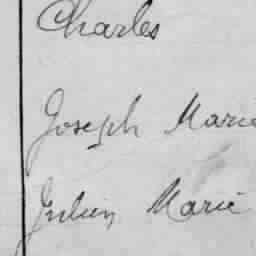 Charles
Joseph Marie
Julien Marie